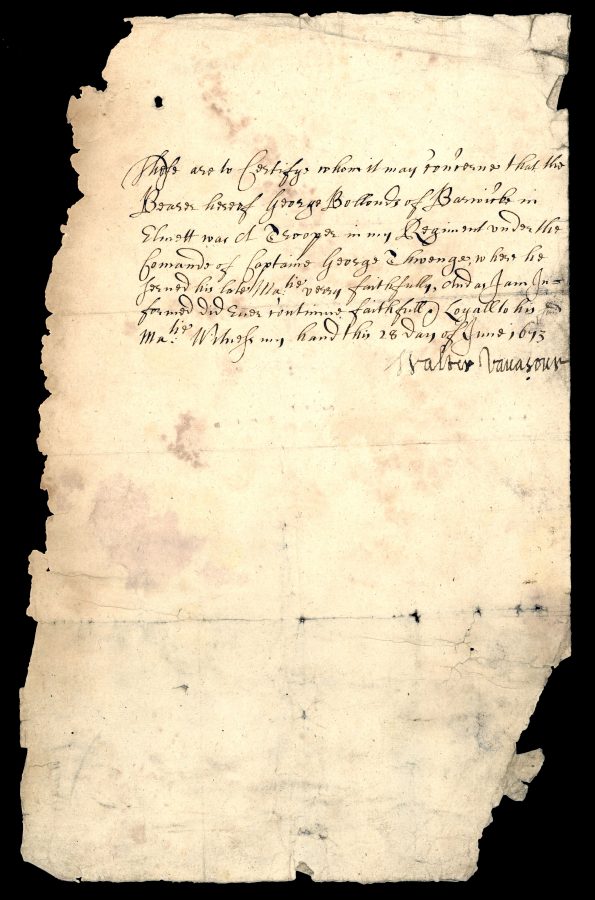 These are to Certifye whom it may conserne that the
Bearer hereof George Bollonds of Barwicke in
Elmett was A Trooper in my Regiment under the
Comande of Captaine George Thwenge, where he
served his late Ma:tie very faithfully, And as I am In-
formed did Ever continue faithfull & Loyall to his
Ma:tie Witness my hand this 28 day of June 1673
Walter Vavasour